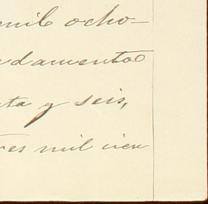 mil ocho-
damentos
ta y seis,
res mil cien